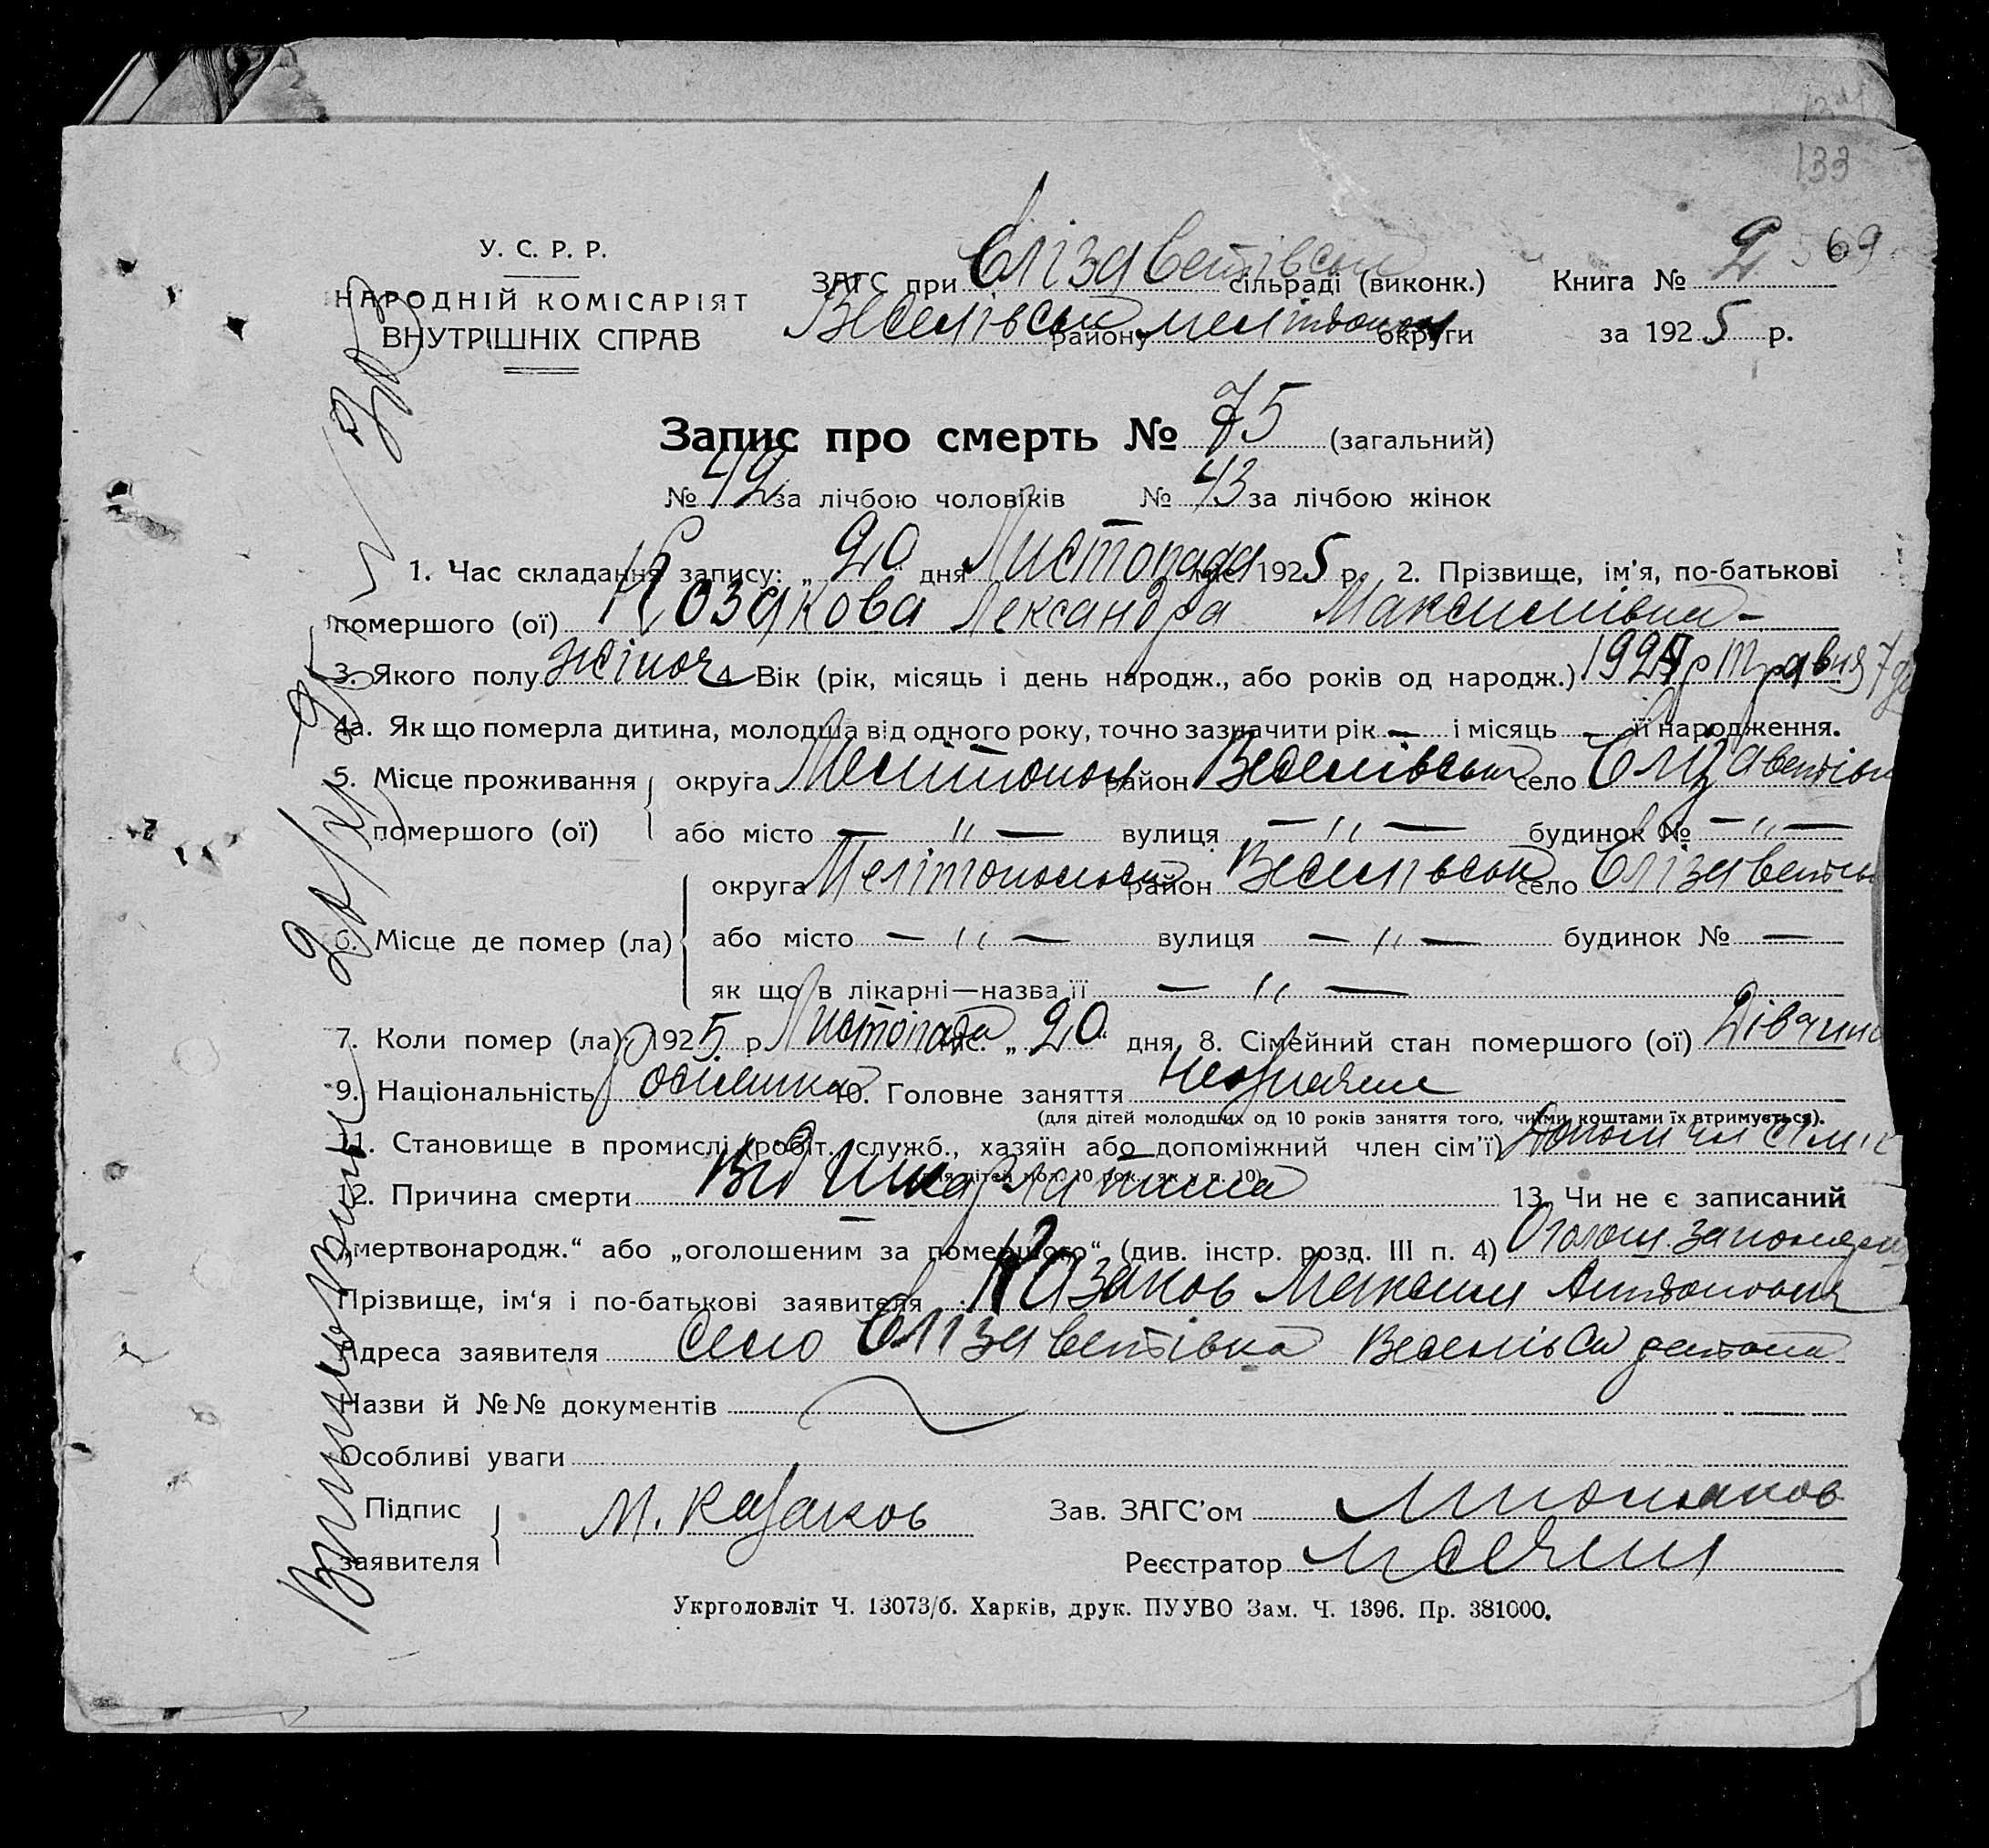 133
У. С. Р. Р.
НАРОДНІЙ КОМІСАРІЯТ
ВНУТРІШНІХ СПРАВ
ЗАГС при Єлізаветівськ сільраді (виконк.)
Веселівськ району Меліт округи
Книга № 2 569
за 1925 р.
Запис про смерть № 75 (загальний)
№ 42 за лічбою чоловіків № 43 за лічбою жінок
1. Час складання запису: „ 20 дня Листопада 1925 р. 2. Прізвище, ім'я, по-батькові
помершого (ої) Козакова Лександра Максимівна
3. Якого полу жіноч 4 Вік (рік, місяць і день народж., або років од народж.) р Травня 7
4а. Як що померла дитина, молодша від одного року, точно зазначити рік — і місяць — її народження.
5. Місце проживання округа Мелітопол район Веселівськ село Єлізаветівк
помершого (ої) або місто — „ — вулиця — „ — будинок № — „ —
округа Мелітопольськ район Веселівськ село Єлізаветівк
6. Місце де помер (ла) або місто — „ — вулиця — „ — будинок № —
як що в лікарні—назва її — „ —
7. Коли помер (ла) 1925 р Листопада міс. „ 20 " дня. 8. Сімейний стан помершого (ої) Дівчина
9. Національність Росіянка 10. Головне заняття
(для дітей молодших од 10 років заняття того, чиїми коштами їх втримується).
11. Становище в промислі (робіт., служб., хазяїн або допоміжний член сім'ї) Допом чл сім'ї
(для дітей мол. 10 рок., як у п. 10)
12. Причина смерти Від Шкарлатина 13. Чи не є записаний
„мертвонародж.“ або „оголошеним за помершого“ (див. інстр. розд. III п. 4) Оголош. за
Прізвище, ім'я і по-батькові заявителя Казаков Максим Антонович
Адреса заявителя село Єлізаветівка Веселівськ
Назви й №№ документів
Особливі уваги
Підпис
заявителя М. Казаков
Зав. ЗАГС'ом
Реєстратор
Укрголовліт Ч. 13073/б. Харків, друк. ПУУВО Зам. Ч. 1396. Пр. 381000.